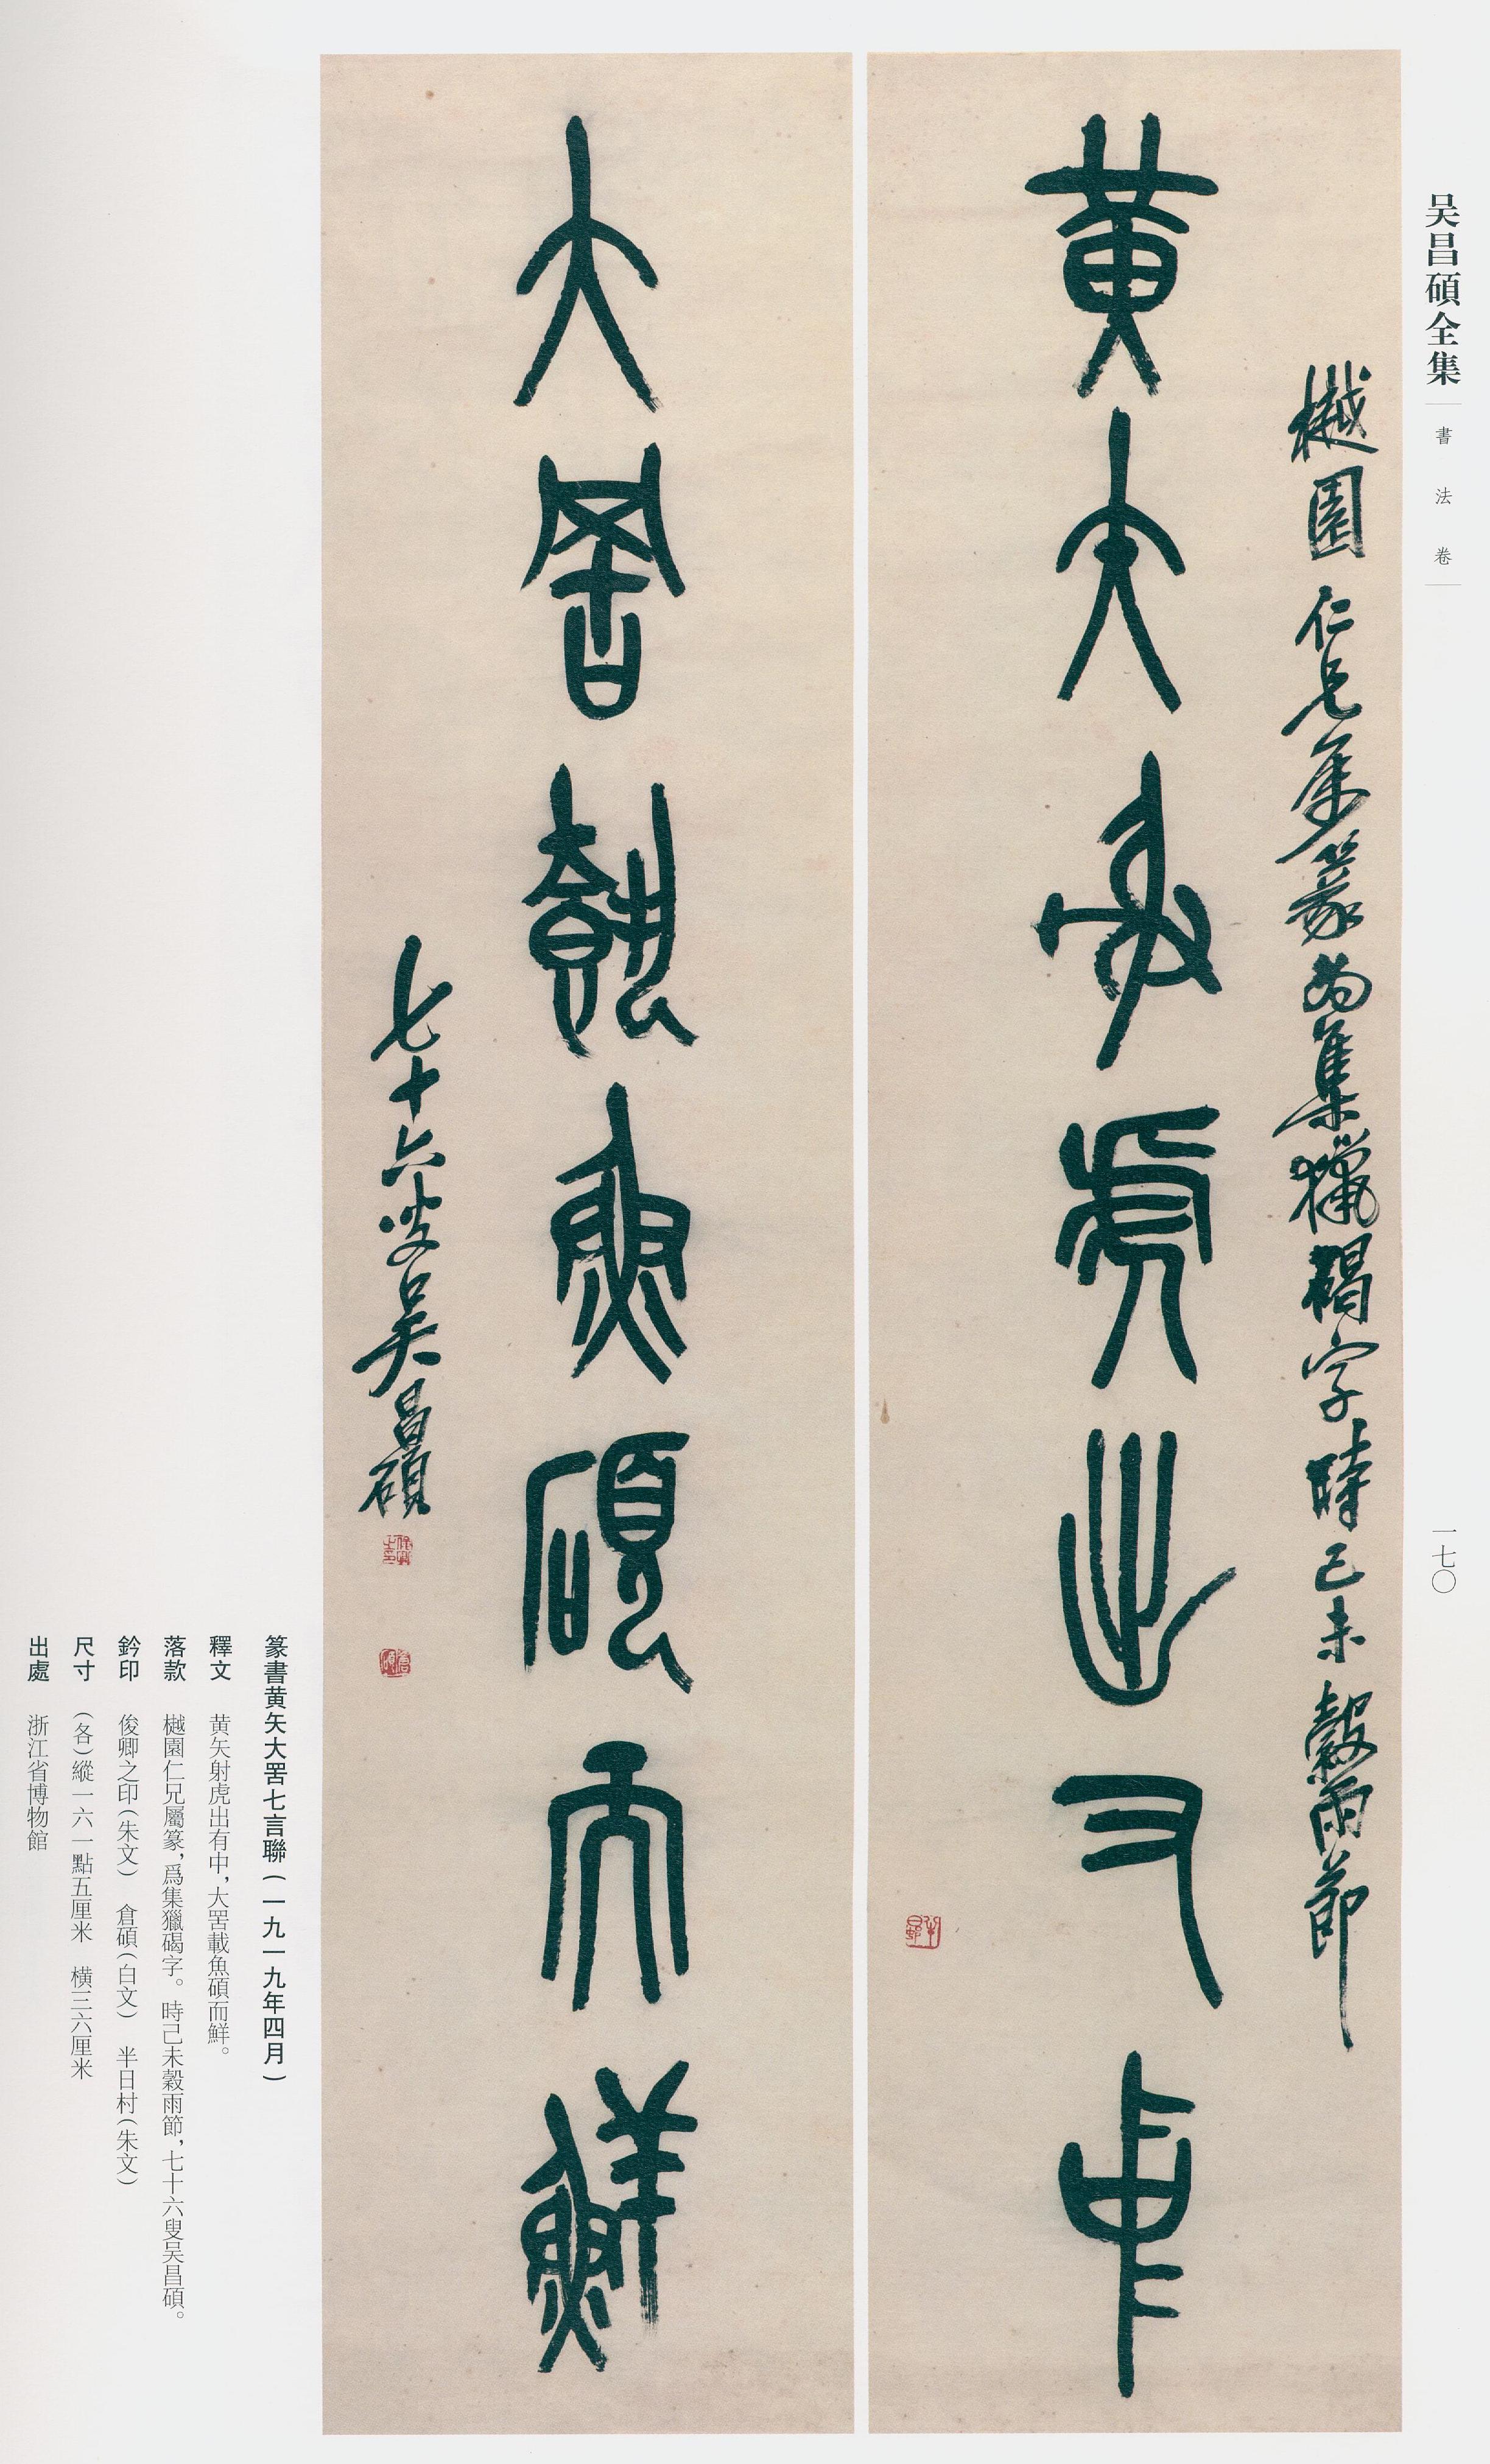 吴昌碩全集
書法卷
一七〇
樾園仁兄属篆為集獵碣字時己未穀雨節
黄矢射虎出又中
半日邨
大罟𩛥魚碩而鮮
七十六叟吴昌碩
俊卿之印
倉碩
篆書黄矢大罟七言聯(一九一九年四月)
釋文 黄矢射虎出有中,大罟載魚碩而鮮。
落款 樾園仁兄屬篆,爲集獵碣字。時己未穀雨節,七十六叟吴昌碩。
鈐印 俊卿之印(朱文) 倉碩(白文) 半日村(朱文)
尺寸 (各)縱一六一點五厘米 橫三六厘米
出處 浙江省博物館